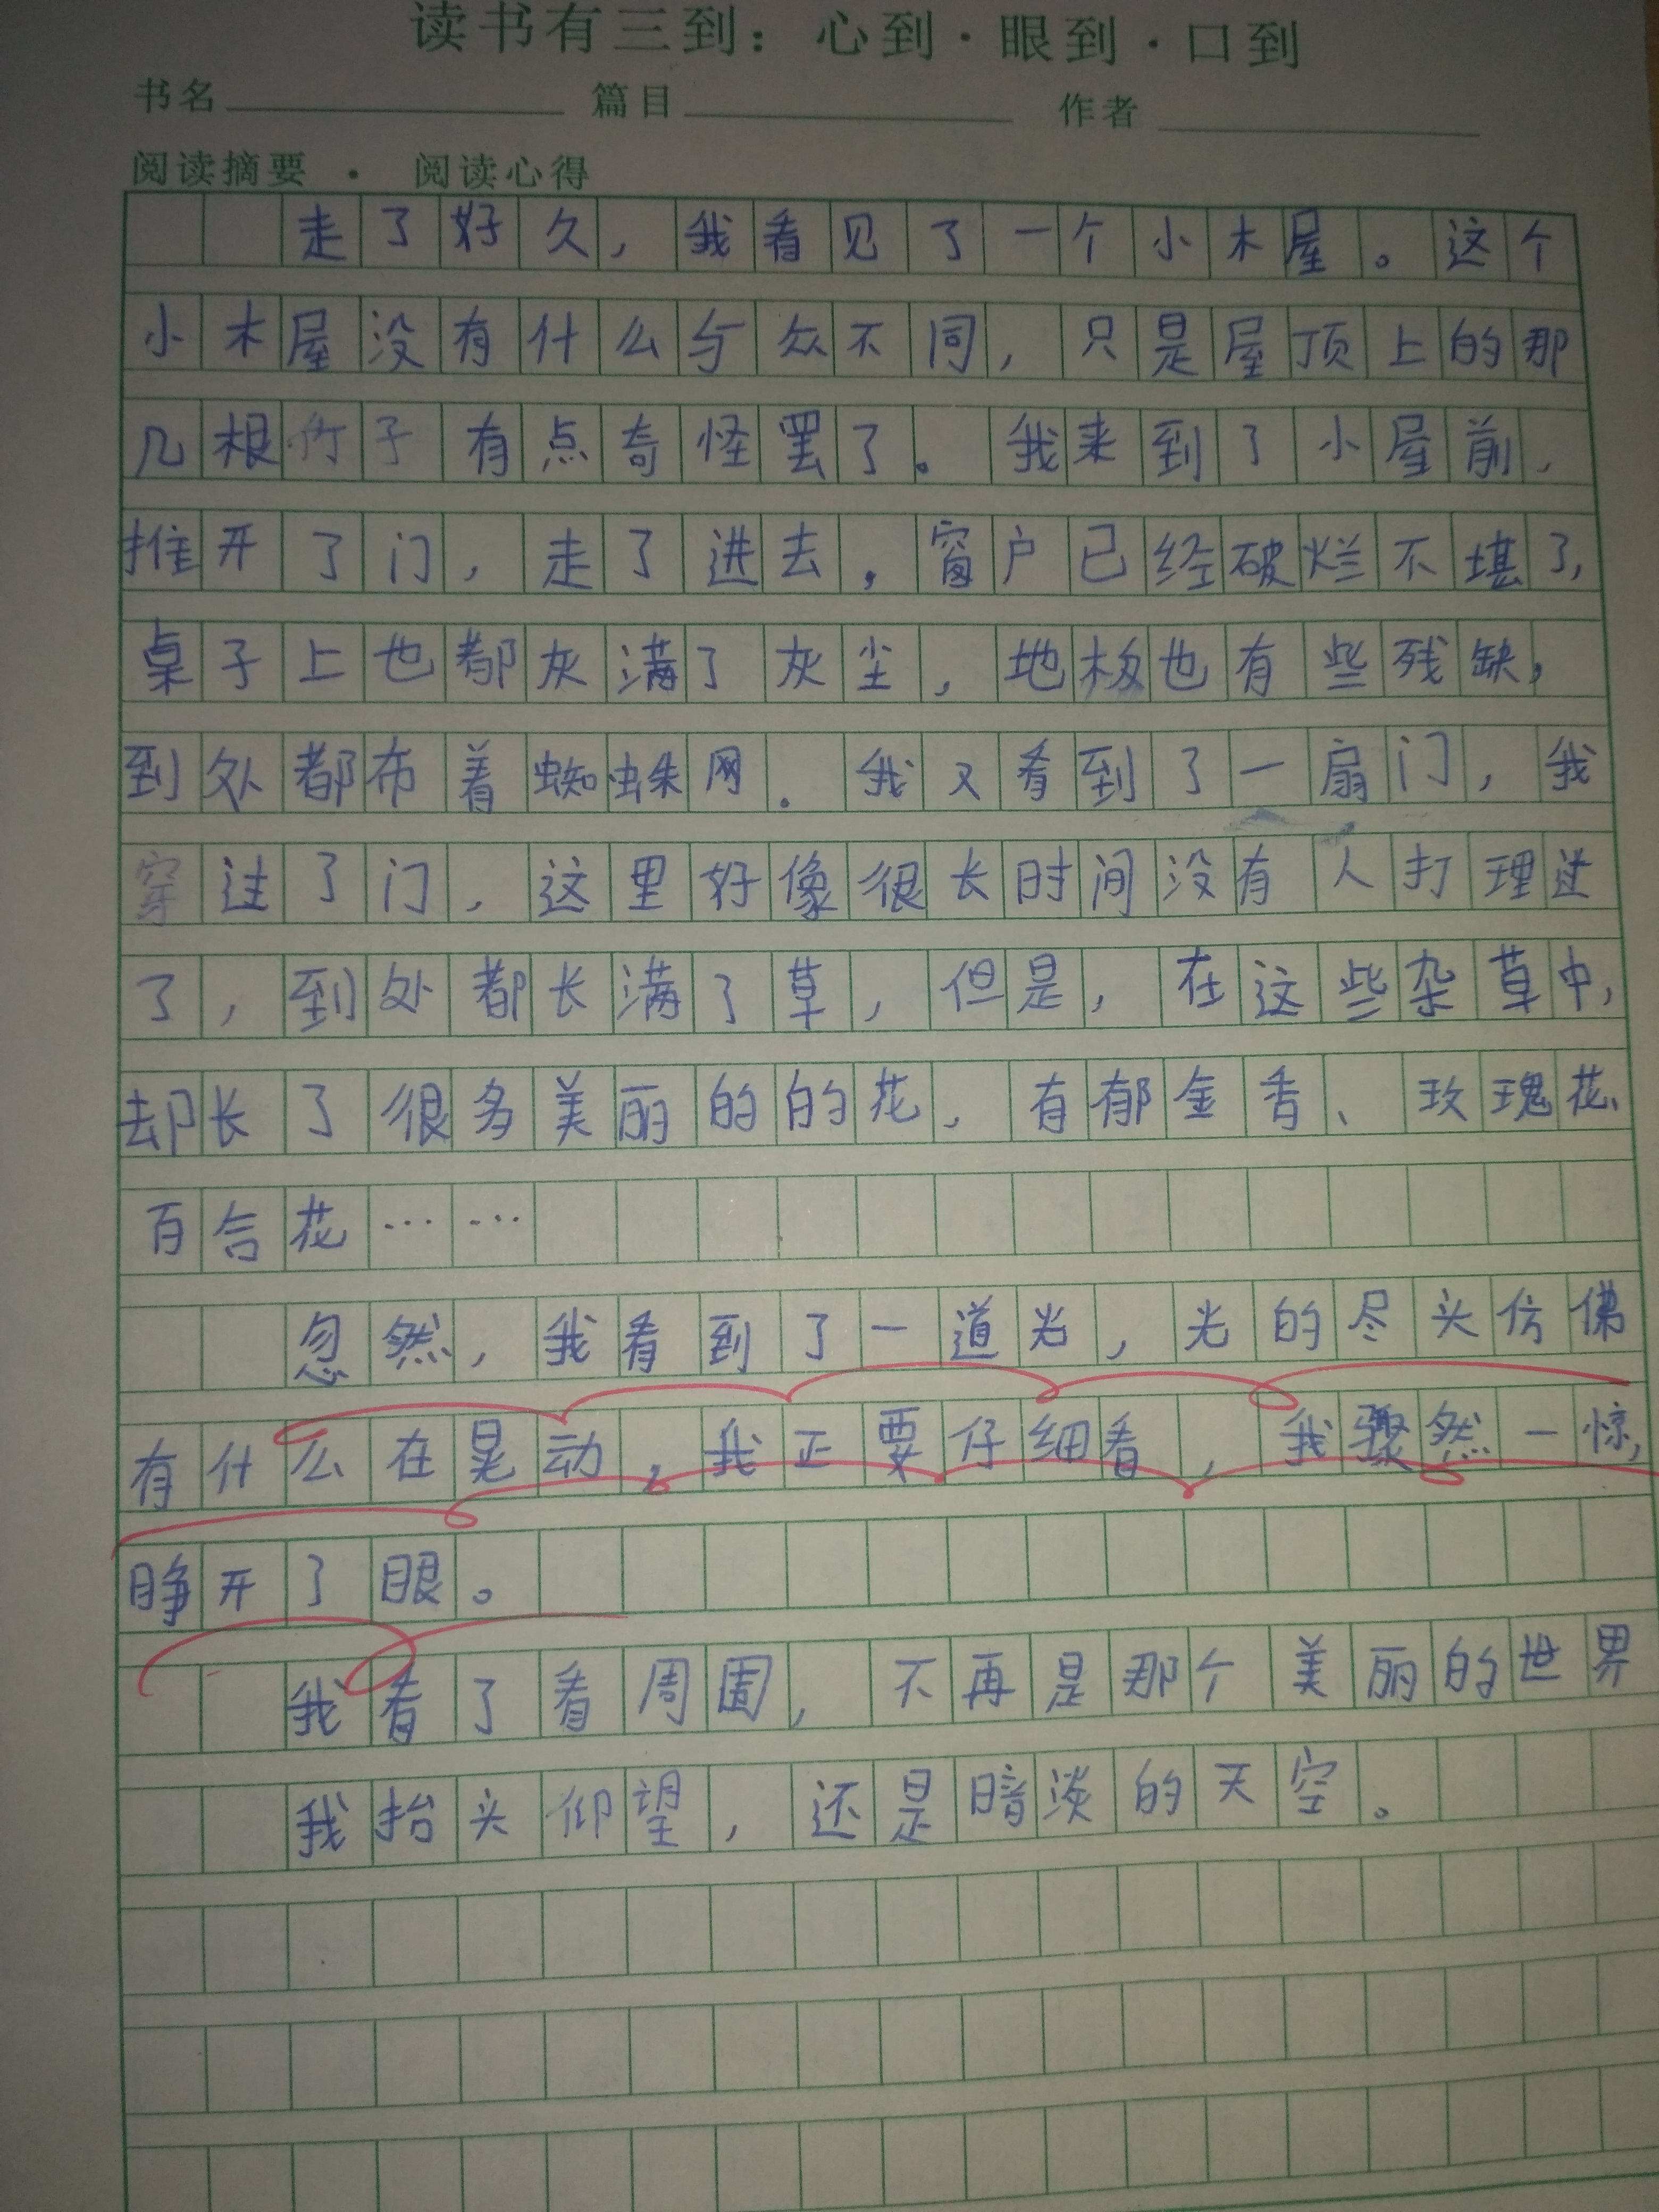 读书有三到：心到·眼到·口到
书名 篇目 作者
阅读摘要 · 阅读心得
走了好久，我看见了一个小木屋。这个
小木屋没有什么与众不同，只是屋顶上的那
几根竹子有点奇怪罢了。我来到了小屋前，
推开了门，走了进去，窗户已经破烂不堪了，
桌子上也都灰满了灰尘，地板也有些残缺，
到处都布着蜘蛛网．我又看到了一扇门，我
穿过了门，这里好像很长时间没有人打理过
了，到处都长满了草，但是，在这些杂草中，
却长了很多美丽的的花，有郁金香、玫瑰花、
百合花……
忽然，我看到了一道光，光的尽头仿佛
有什么在晃动，我正要仔细看，我骤然一惊，
睁开了眼。
我看了看周围，不再是那个美丽的世界
我抬头仰望，还是暗淡的天空。